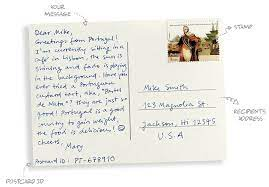 YOUR MESSAGE
Dear Mike,
Greetings from Portugal!
I'm currently sitting in a
cafe in Lisbon, the sun is
shining and fado is playing
in the background. Have you
ever tried a Portuguese
custard tart, aka, "Pastel
de Nata"? They are just so
good! Portugal is a good
country to gain weight,
the food is delicious!
Cheers,
Mary
Postcard ID: PT-678910
POSTCARD ID
STAMP
Mike Smith
123 Magnolia St.
Jackson, Hi 12345
U.S.A
RECIPIENTS ADDRESS